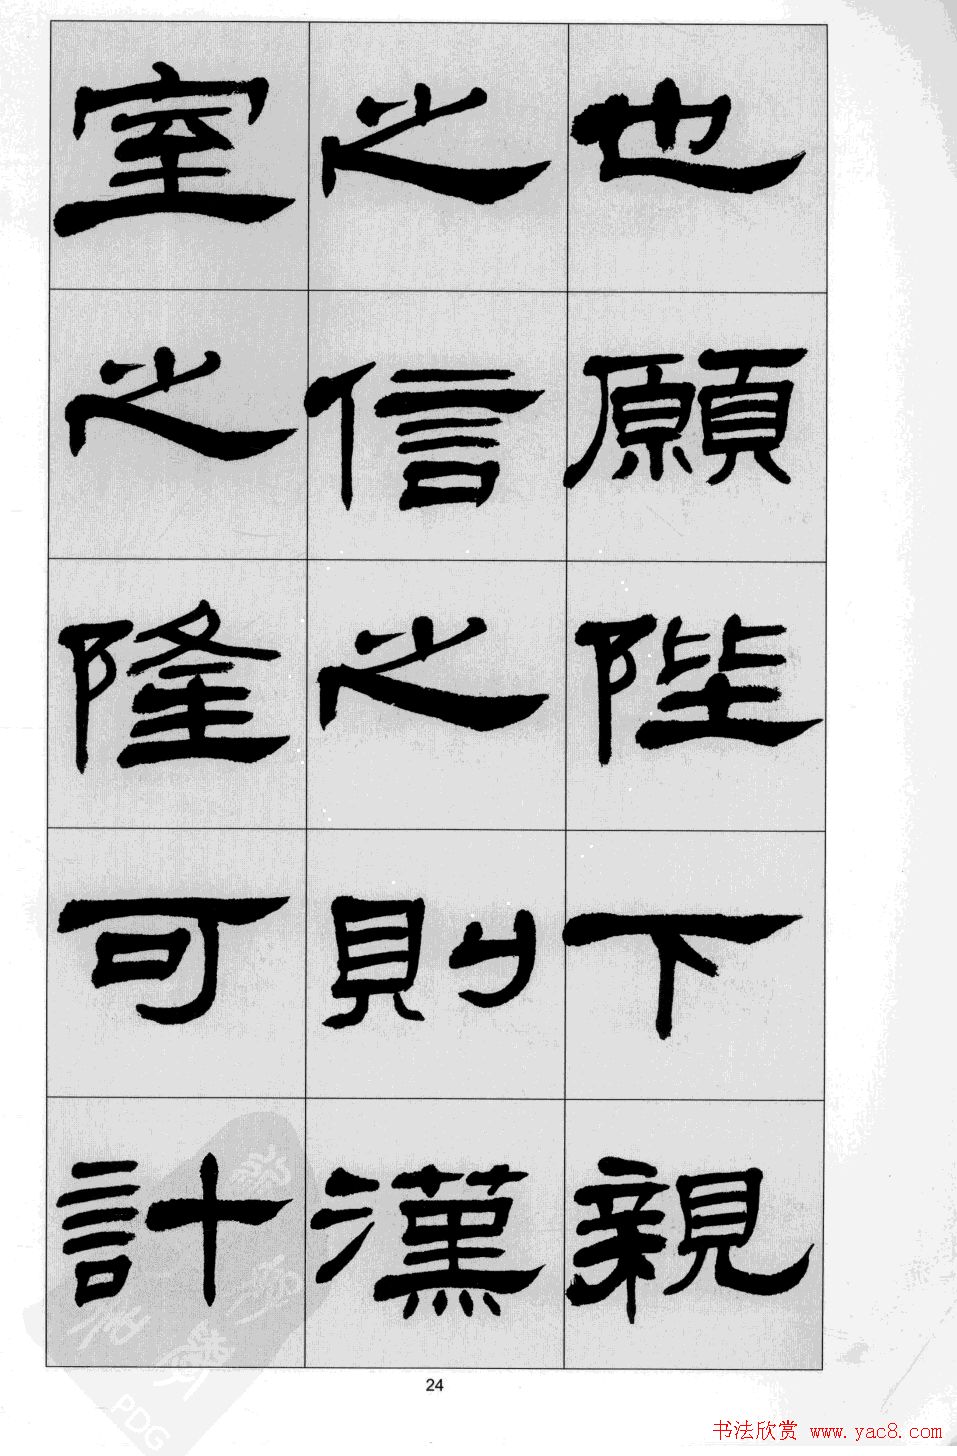 也願陛下親
之信之則漢
室之隆可計
24
书法欣赏 www.yac8.com
PDG